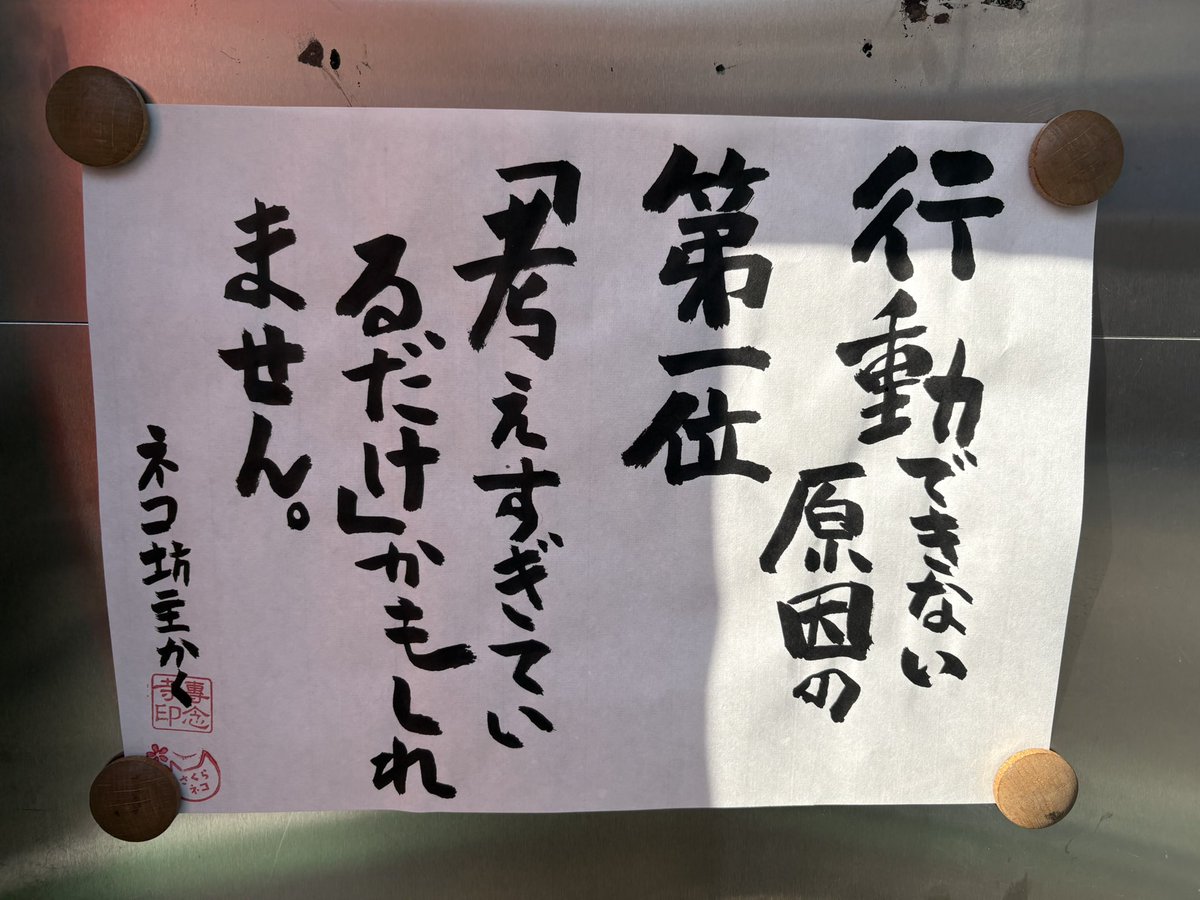 行動できない
原因の
第一位
「考えすぎてい
るだけ」かもしれ
ません。
ネコ坊主かく
專念
寺印
さくら
ネコ